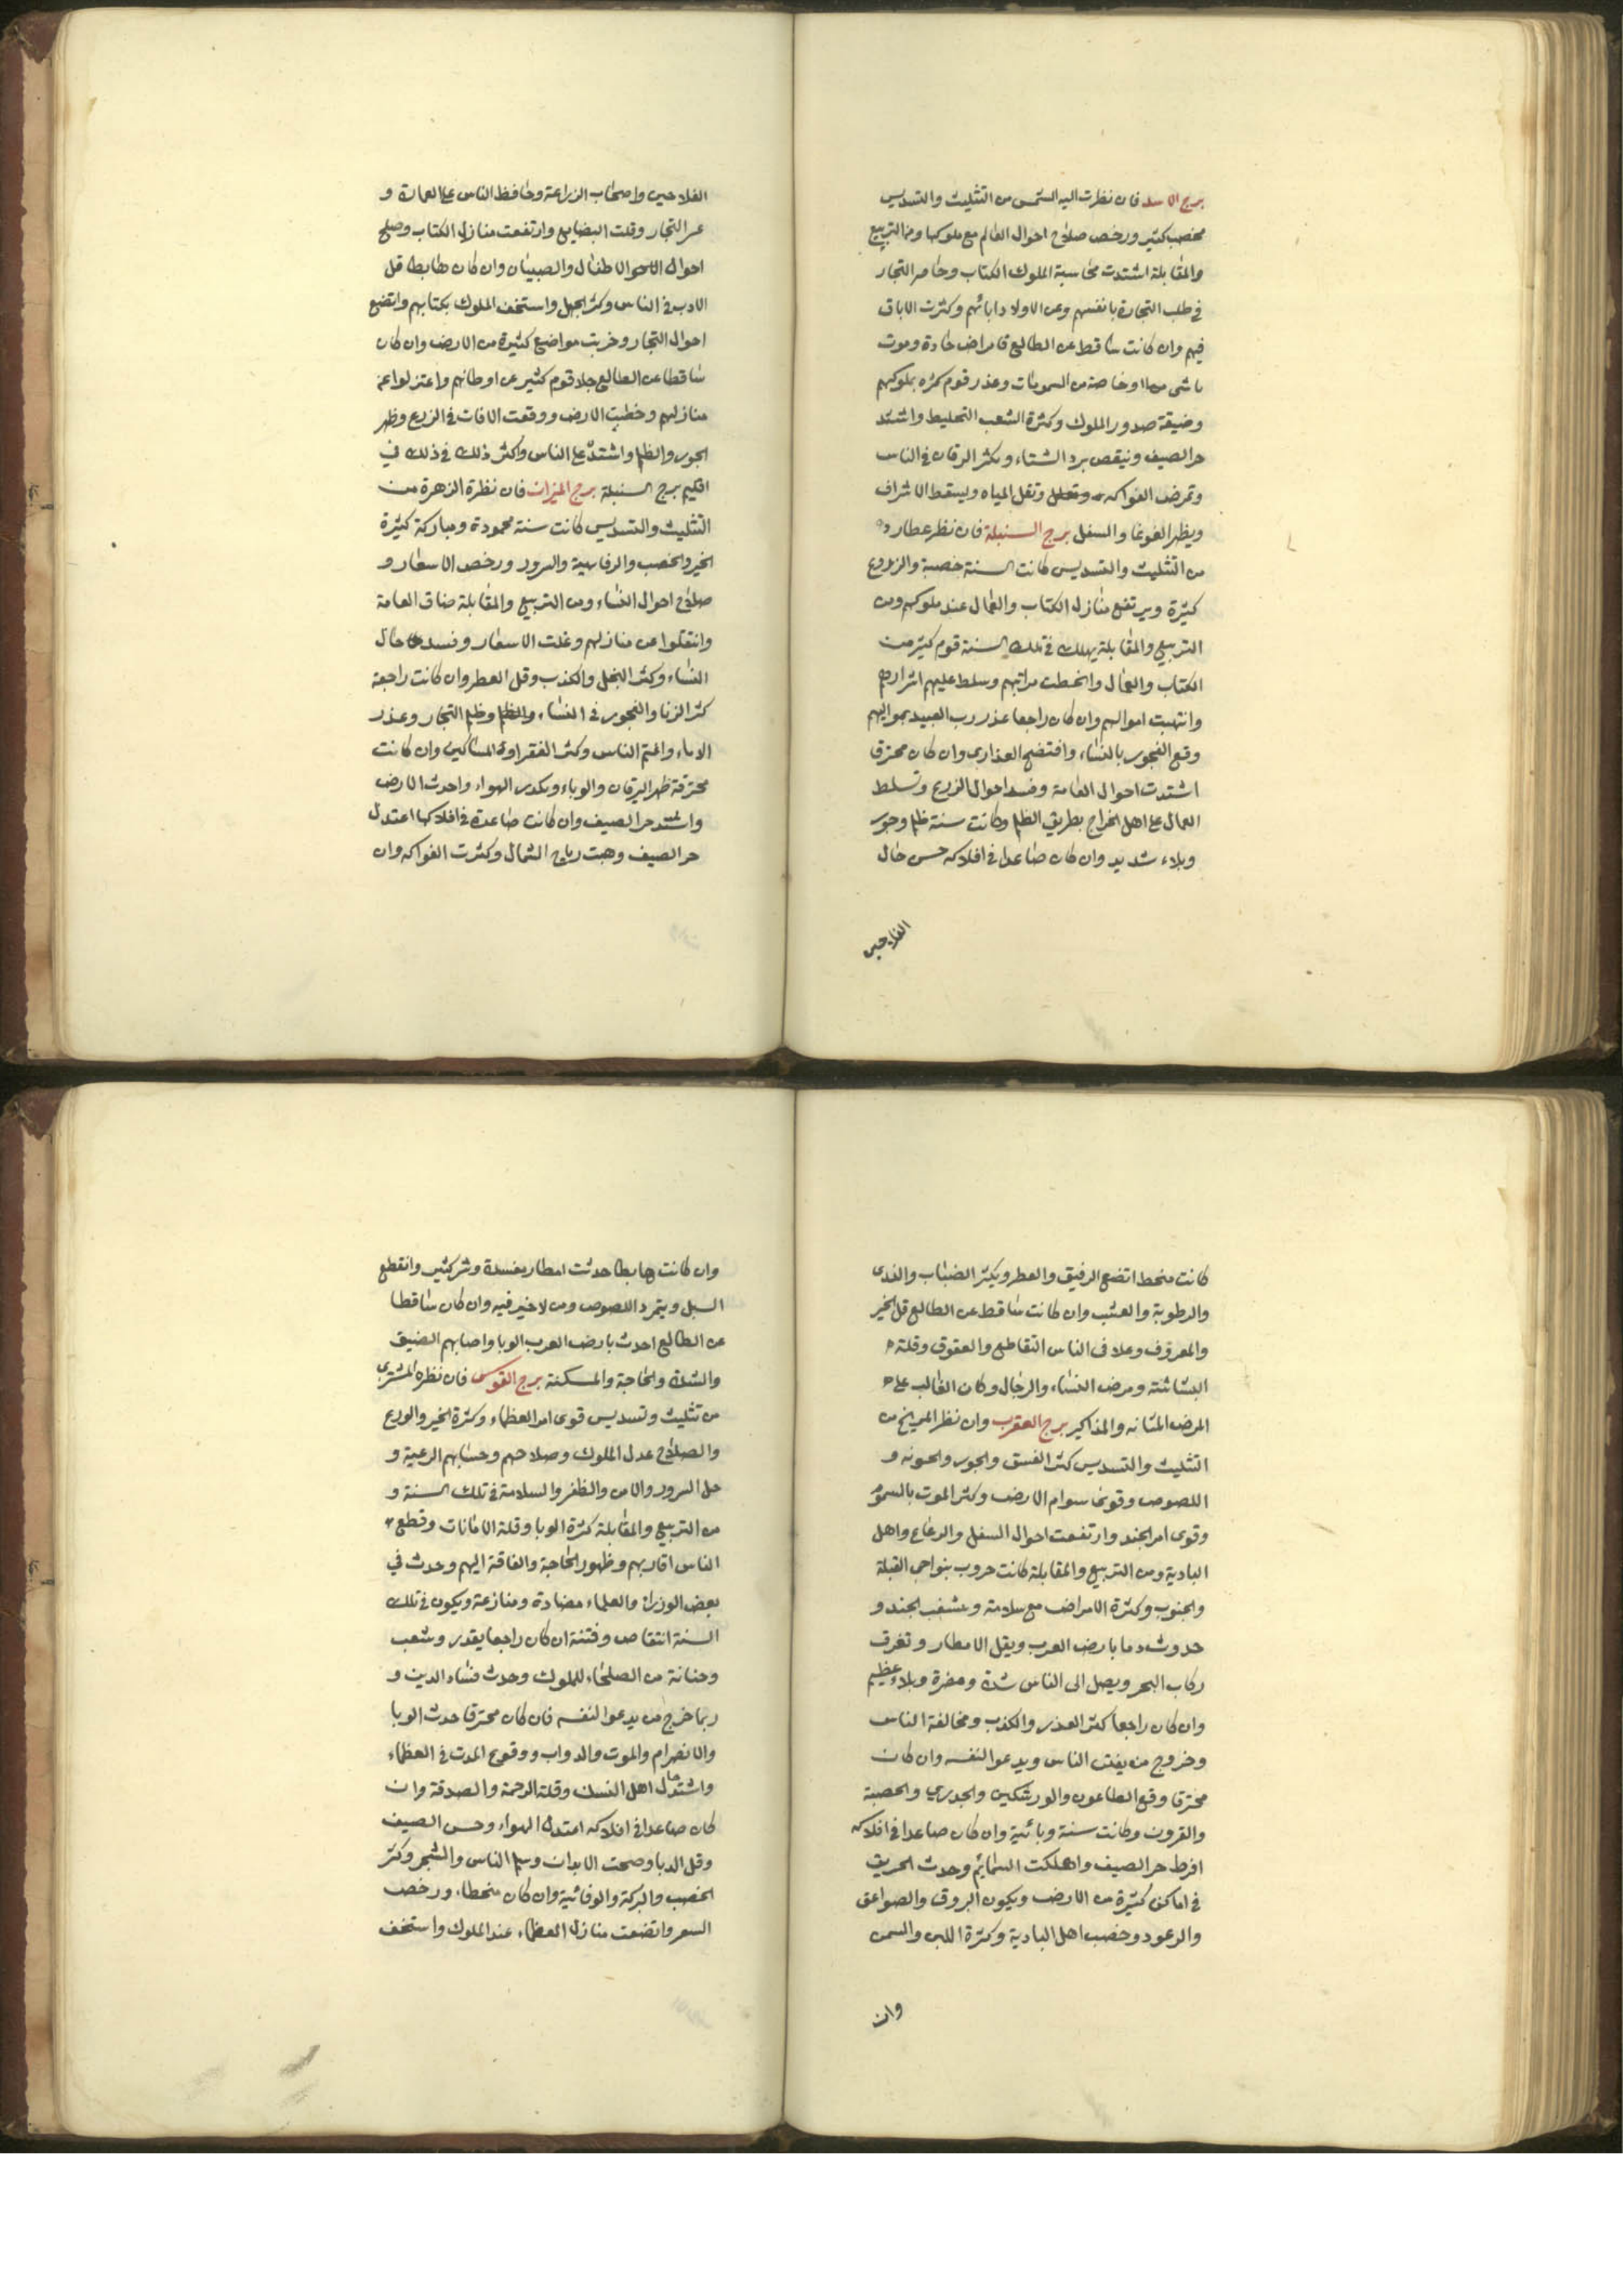 برج الاسد فان نظرت اليه الشمس من التثليث والتسديس
مخصب كثير ورخص صلاح احوال العالم مع ملوكها ومن التربيع
والمقابلة اشتدت محاسبة الملوك الكتاب وخاصر التجار
في طلب التجارة بانفسهم وعن الاولاد ابائهم وكثرت الاباق
فيهم وان كانت ساقط عن الطالع فامراض حادة وموت
ماشى من اوخاصة من السمومات وعذر قوم كثره بملوكهم
وضيقة صدور الملوك وكثرة الشعب التحليط واشتد
حر الصيف ونيقص برد الشتاء ويكثر الرقان في الناس
وتمرض الفواكه وتقل المياه ويسقط الاشراف
ويظهر الغوغا والسفل برج السنبلة فان نظر عطارد
من التثليث والتسديس كانت السنة خصبة والزروع
كثيرة ويرتفع منازل الكتاب والعمال عند ملوكهم ومن
التربيع والمقابلة يهلك في تلك السنة قوم كثير من
الكتاب والعمال وانحطت مراتبهم وسلط عليهم اشرارهم
وانتهبت اموالهم وان كان راجعا عذر رب العبيد بمواليهم
وقع الفجور بالنساء وافتضح العذارى وان كان محترق
اشتدت احوال العامة وفسد احوال الزرع وتسلط
العمال على اهل الخراج بطريق الظلم وكانت سنة ظلم وجور
وبلاء شديد وان كان صاعدا في افلاكه حسن حال
الفلاحين
الفلاحين واصحاب الزراعة وحافظ الناس على العمارة و
عسر التجار وقلت البضايع وارتفعت منازل الكتاب وصلح
احوال الاطفال والصبيان وان كان هابطا قل
الادب في الناس وكثر الجهل واستخف الملوك بكتابهم واتضع
احوال التجار وخربت مواضع كثيرة من الارض وان كان
ساقطا عن الطالع جلا قوم كثير عن اوطانهم واعتزلوا عن
منازلهم وخطيت الارض ووقعت الافات في الزرع وظهر
الجور والظلم واشتد على الناس واكثر ذلك في ذلك في
اقليم برج السنبلة برج الميزان فان نظرة الزهرة من
التثليث والتسديس كانت سنة محمودة ومباركة كثيرة
الخير والخصب والرفاهية والسرور ورخص الاسعار و
صلاح احوال النساء ومن التربيع والمقابلة ضاق العامة
وانتقلوا عن منازلهم وغلت الاسعار وفسد حال
النساء وكثر البخل والكذب وقل العطر وان كانت راجعة
كثر الزنا والفجور في النساء والظلم وظلم التجار وعذر
الاماء والمتم الناس وكثر الفقر او المساكين وان كانت
محترقة ظهر اليرقان والوباء وتكدر الهواء واحدث الارض
واشتد حر الصيف وان كانت صاعدة في افلاكها اعتدل
حر الصيف وهبت رياح الشمال وكثرت الفواكه وان
كانت منحط اتضع الرفيق والعطر ويكثر الضباب والندى
والرطوبة والعشب وان كانت ساقط عن الطالع قل الخير
والمعروف وعلا في الناس التقاطع والعقوق وقلة
البشاشة ومرض النساء والرجال وكان الغالب على
المرض المثانه والمذاكير برج العقرب وان نظر المريخ من
التثليث والتسديس كثر الفسق والجور والخونه و
اللصوص وقوتها سوام الارض وكثر الموت بالسموم
وقوى امر الجند وارتفعت احوال السفل والرعاع واهل
البادية ومن التربيع والمقابلة كانت حروب بنواحى القبلة
والجنوب وكثرة الامراض مع سلامة وشغب الجند و
حدوث دما بارض العرب ويقل الامطار وتغرق
ركاب البحر ويصل الى الناس شدة ومضرة وبلاء عظيم
وان كان راجعا كثر العذر والكذب ومخالفة الناس
وخروج من يفتن الناس ويدعوا لنفسه وان كان
محترقا وقع الطاعون والورشكين والجدري والحصبة
والقرون وكانت سنة وبائية وان كان صاعدا في افلاكه
افرط حر الصيف واهلكت السمائم وحدث الحريق
في اماكن كثيرة من الارض ويكون البروق والصواعق
والرعود وخصب اهل البادية وكثرة اللبن والسمن
وان
وان كانت هابطا حدثت امطار مفسدة وشر كثير وانقطع
السبل ويتمرد اللصوص ومن لا خير فيه وان كان ساقطا
عن الطالع احدث بارض العرب الوبا واصابهم الضيق
والشدة والحاجة والمسكنة برج القوس فان نظره المشترى
من تثليث وتسديس قوى امر العظماء وكثرة الخير والورع
والصلاح عدل الملوك وصلاحهم وحسابهم الرعية و
حل السرور والامن والظفر والسلامة في تلك السنة و
من التربيع والمقابلة كثرة الوبا وقلة الامانات وقطع
الناس اقاربهم وظهور الحاجة والفاقة اليهم وحدث في
بعض الوزراء والعلماء مضادة ومنازعة ويكون في تلك
السنة انتقاص وفتنة ان كان راجعا يقدر وشعب
وخيانة من الصلحاء للملوك وحدث فساد الدين و
ربما خرج من يدعوا لنفسه فان كان محترقا حدث الوبا
والانصرام والموت والدواب ووقوع الموت في العظماء
واشتد حال اهل النسك وقلة الرحمة والصدقة وان
كان صاعدا في افلاكه اعتدل الهواء وحسن الصيف
وقل الدبا وصحت الابدان وسلم الناس والشجر وكثر
الخصب والبركة والوفائية وان كان منحطا، ورخص
السعر واتضعت منازل العظماء عند الملوك واستخف